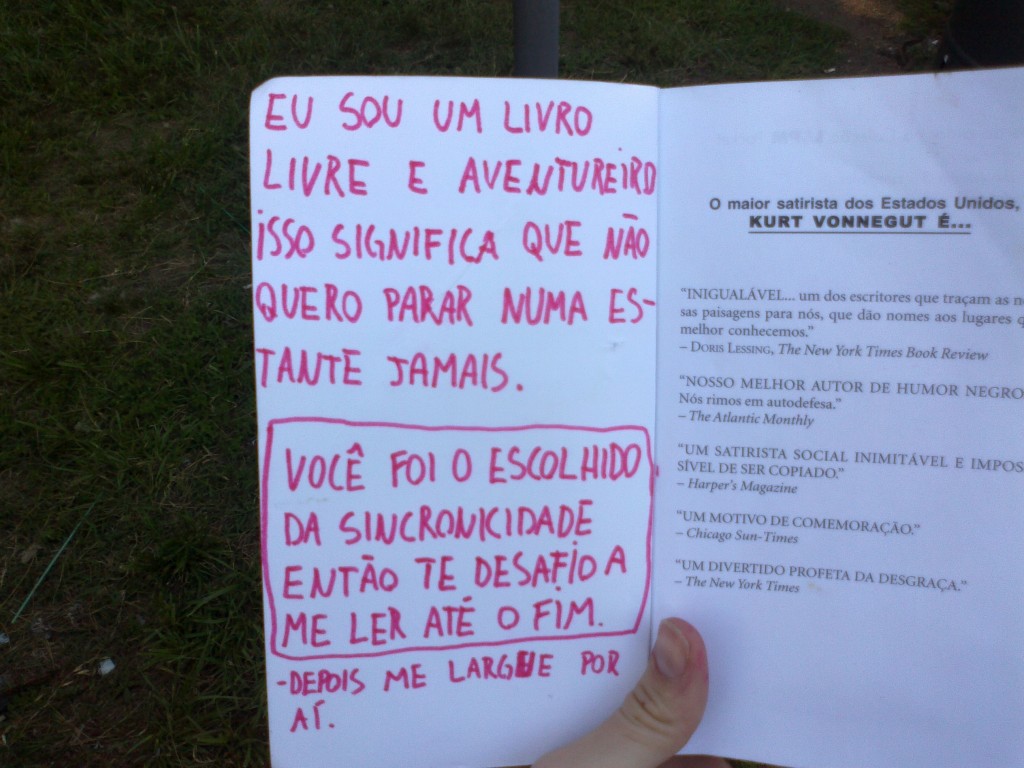 EU SOU UM LIVRO
LIVRE E AVENTUREIRO
ISSO SIGNIFICA QUE NÃO
QUERO PARAR NUMA ES-
TANTE JAMAIS.
VOCÊ FOI O ESCOLHIDO
DA SINCRONICIDADE
ENTÃO TE DESAFIO A
ME LER ATÉ O FIM.
-DEPOIS ME LARGUE POR
AÍ.
O maior satirista dos Estados Unidos,
KURT VONNEGUT É...
"INIGUALÁVEL... um dos escritores que traçam as
sas paisagens para nós, que dão nomes aos lugares
melhor conhecemos."
– DORIS LESSING, The New York Times Book Review
"NOSSO MELHOR AUTOR DE HUMOR NEGRO
Nós rimos em autodefesa."
– The Atlantic Monthly
"UM SATIRISTA SOCIAL INIMITÁVEL E IMPOS
SÍVEL DE SER COPIADO."
– Harper's Magazine
"UM MOTIVO DE COMEMORAÇÃO."
– Chicago Sun-Times
"UM DIVERTIDO PROFETA DA DESGRAÇA."
– The New York Times